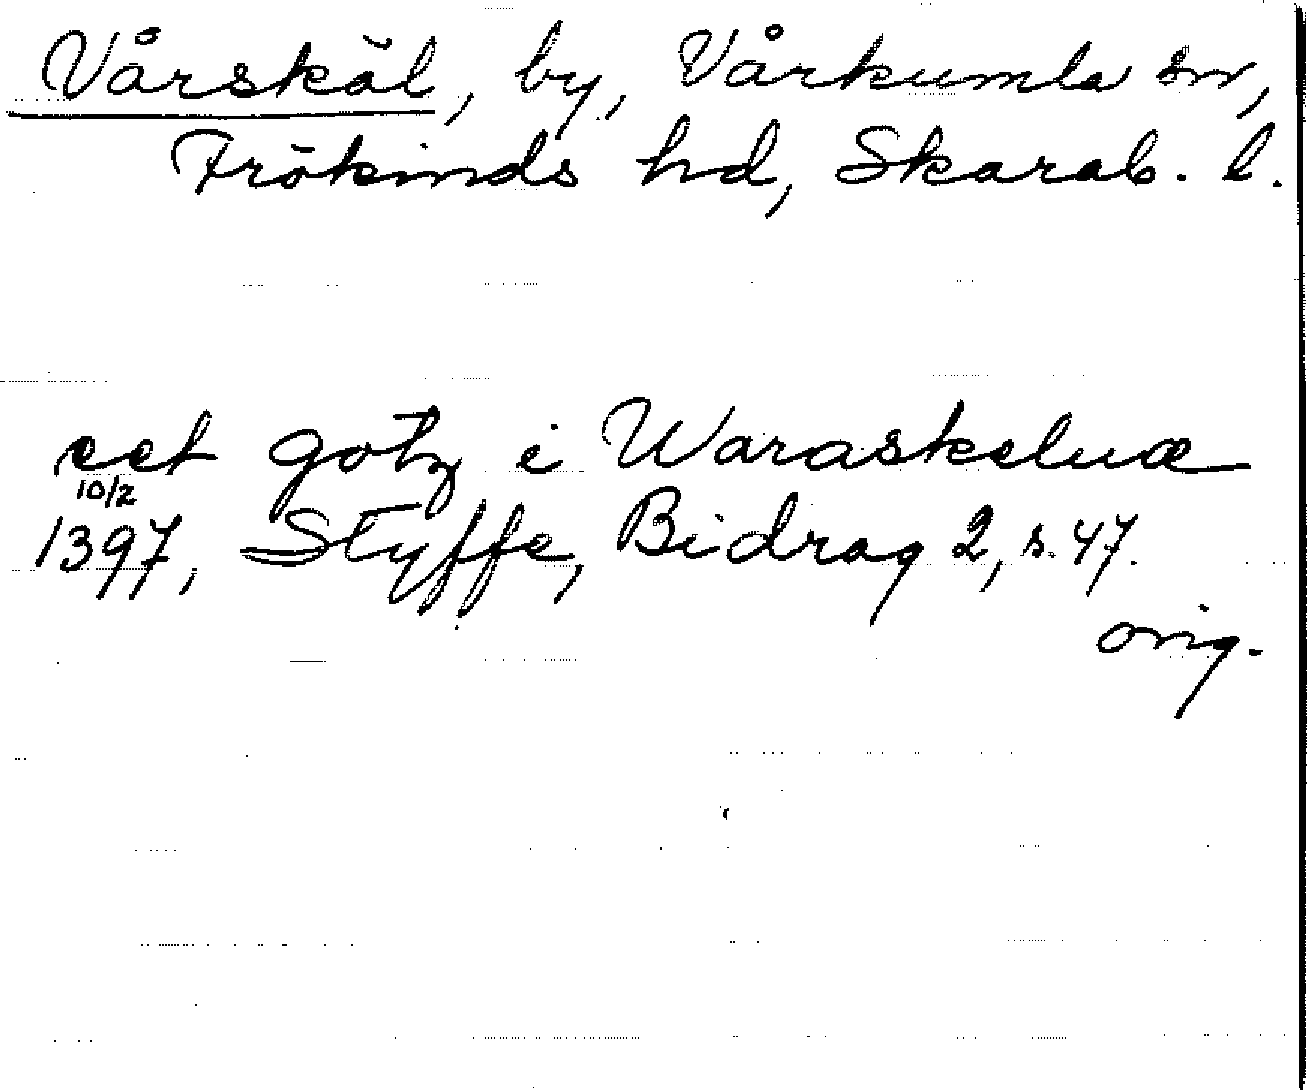 Vårskäl, by, Vårkumla sn,
Frökinds hd, Skarab. l.
eet gotz i Waraskeluæ
10/2
1397, Styffe, Bidrag 2, s. 47.
orig.